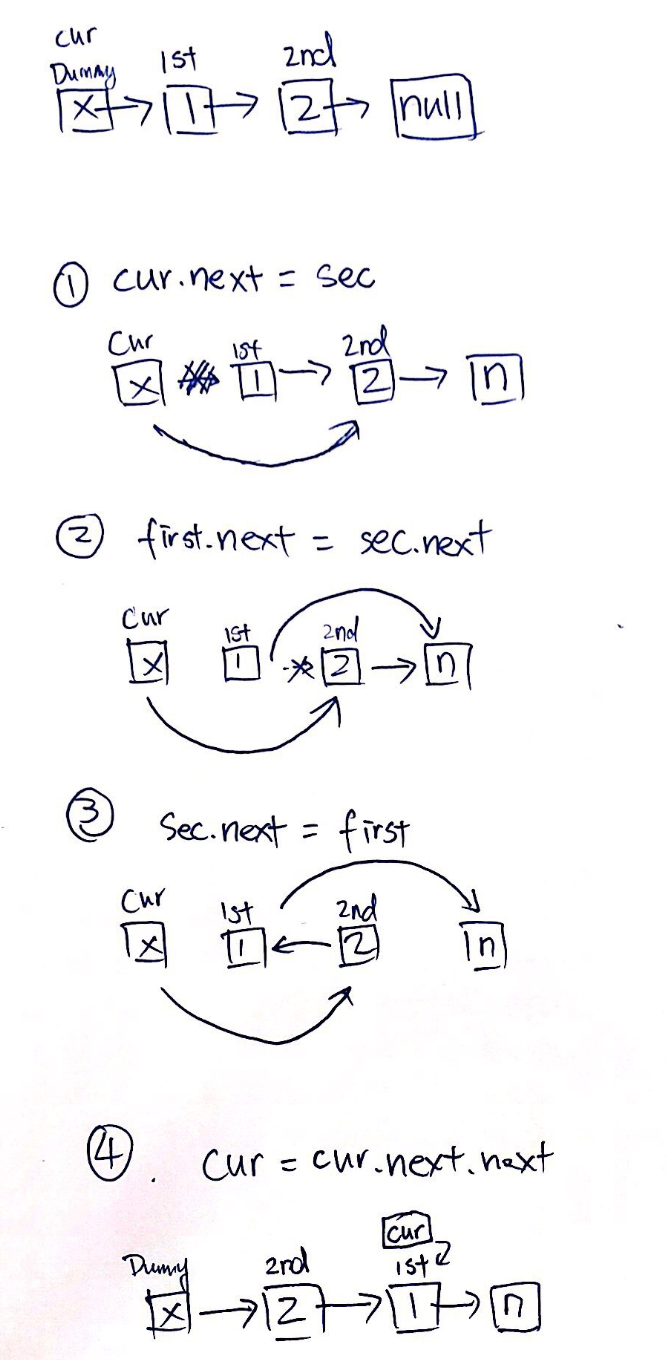 cur
Dummy 1st 2nd
x 1 2 null
① cur.next = sec
Cur 1st 2nd
x 1 2 n
② first.next = sec.next
Cur 1st 2nd
x 1 2 n
③ Sec.next = first
Cur 1st 2nd
x 1 2 n
④. Cur = cur.next.next
cur
Dummy 2nd 1st
x 2 1 n